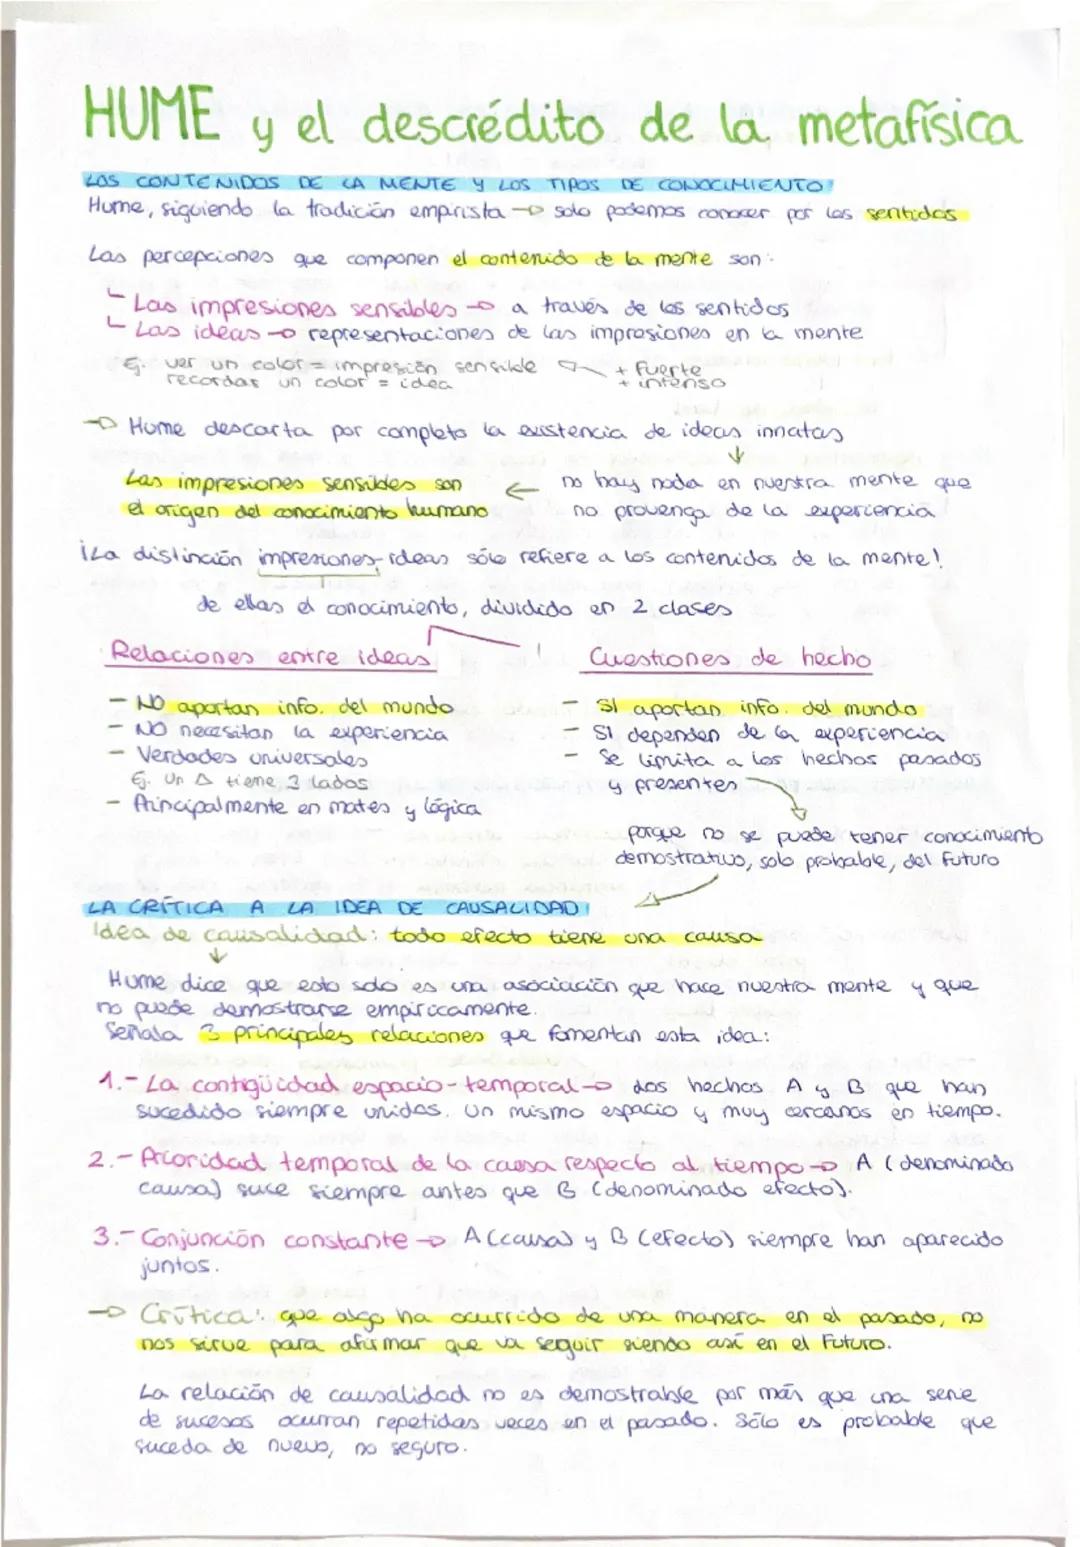 HUME y el descrédito de la metafísica
LOS CONTENIDOS DE LA MENTE Y LOS TIPOS DE CONOCIMIENTO:
Hume, siguiendo la tradición empirista → solo podemos conocer por los sentidos
Las percepciones que componen el contenido de la mente son:
Las impresiones sensibles → a través de los sentidos
Las ideas → representaciones de las impresiones en la mente
Ej. ver un color = impresión sensible ← + fuerte
+ intenso
recordar un color = idea
→ Hume descarta por completo la existencia de ideas innatas
↓
no hay nada en nuestra mente que
no provenga de la experiencia
← Las impresiones sensibles son
el origen del conocimiento humano
¡La distinción impresiones-ideas sólo refiere a los contenidos de la mente!
de ellas el conocimiento, dividido en 2 clases
Relaciones entre ideas
- NO aportan info. del mundo
- NO necesitan la experiencia
- Verdades universales
Ej. Un △ tiene 3 lados
- Principalmente en mates y lógica
Cuestiones de hecho
- SI aportan info. del mundo
- SI dependen de la experiencia
- Se limita a los hechos pasados
y presentes
porque no se puede tener conocimiento
demostrativo, solo probable, del futuro
LA CRÍTICA A LA IDEA DE CAUSALIDAD:
Idea de causalidad: todo efecto tiene una causa
↓
Hume dice que esto solo es una asociación que hace nuestra mente y que
no puede demostrarse empíricamente.
Señala 3 principales relaciones que fomentan esta idea:
1.- La contigüidad espacio-temporal → dos hechos A y B que han
sucedido siempre unidos. Un mismo espacio y muy cercanos en tiempo.
2.- Prioridad temporal de la causa respecto al tiempo → A (denominado
causa) suce siempre antes que B (denominado efecto).
3.- Conjunción constante → A (causa) y B (efecto) siempre han aparecido
juntos.
→ Crítica: que algo ha ocurrido de una manera en el pasado, no
nos sirve para afirmar que va seguir siendo así en el futuro.
La relación de causalidad no es demostrable por más que una serie
de sucesos ocurran repetidas veces en el pasado. Sólo es probable que
suceda de nuevo, no seguro.